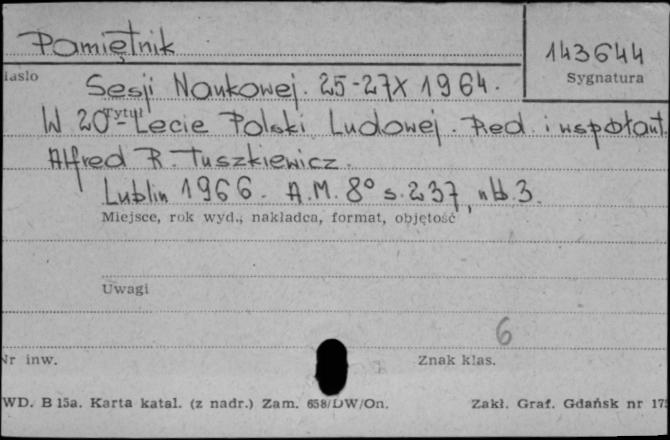 Pamiętnik
143644
iasło
Sygnatura
Sesji Naukowej. 25-27X 1964.
Tytuł
W 20-Lecie Polski Ludowej. Red. i współaut.
Alfred R. Tuszkiewicz.
Lublin 1966. A.M. 8° s. 237, nlb. 3.
Miejsce, rok wyd., nakładca, format, objętość
Uwagi
6
Nr inw.
Znak klas.
WD. B 15a. Karta katal. (z nadr.) Zam. 658/DW/On.
Zakł. Graf. Gdańsk nr 17